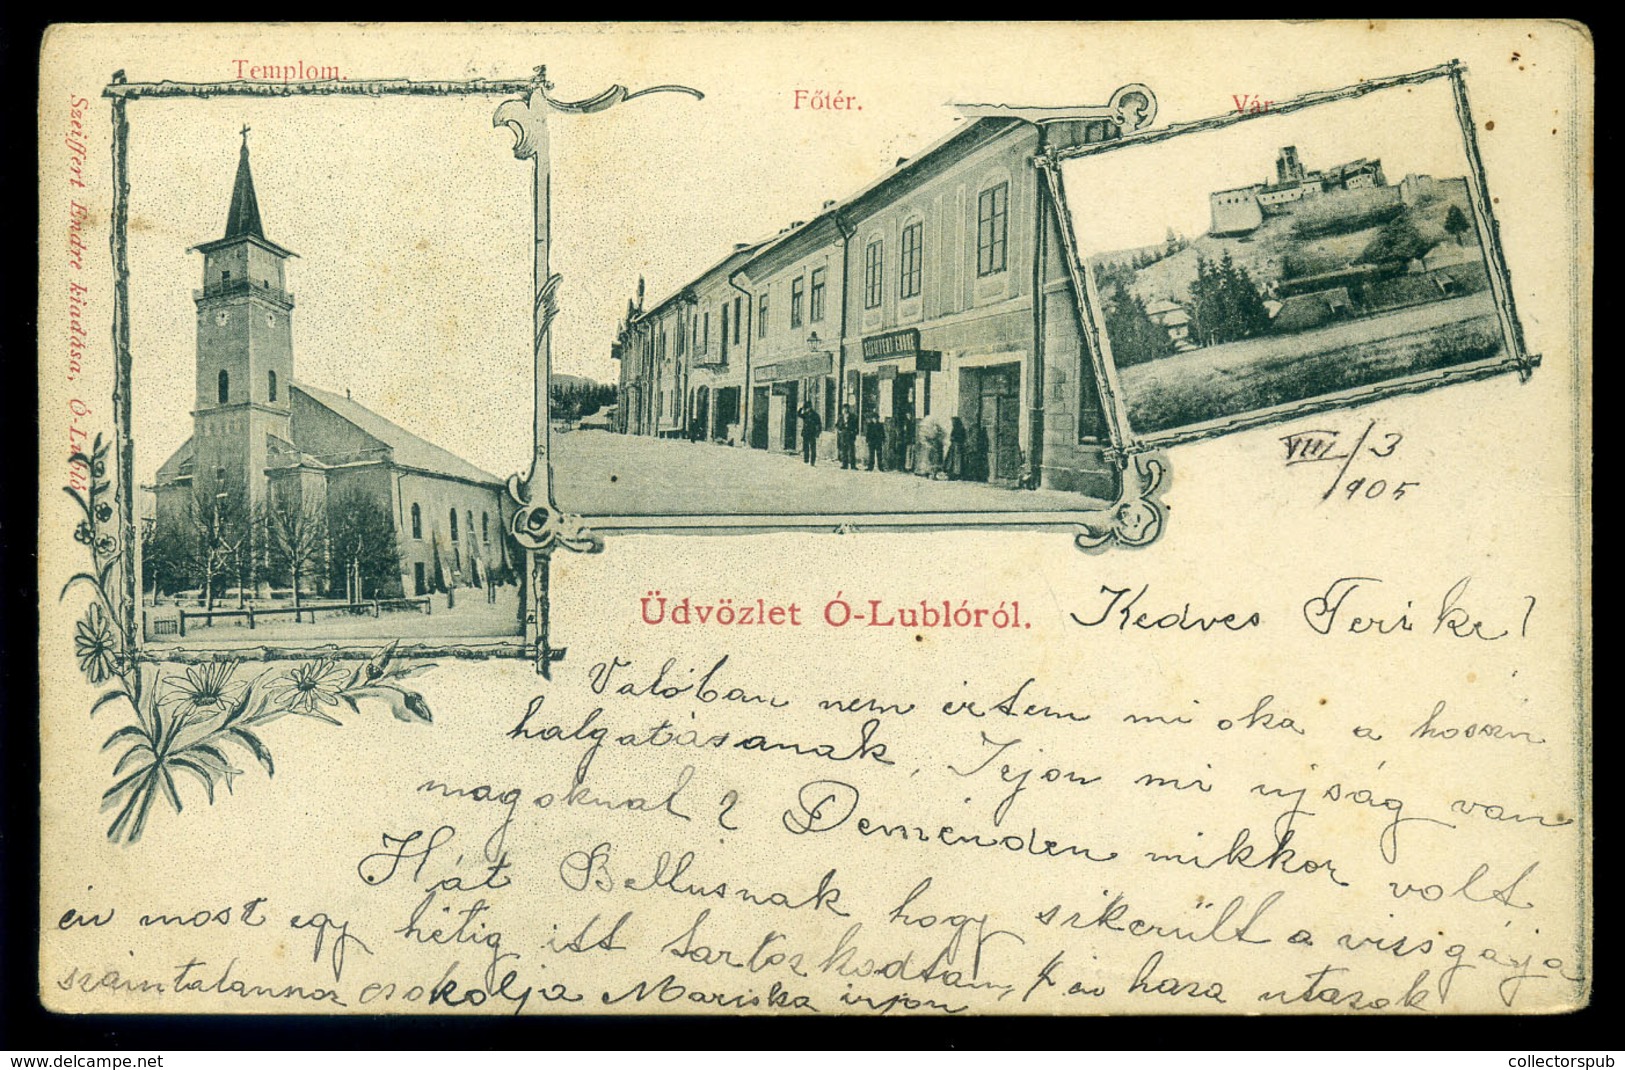 Templom.
Főtér.
Vár
Szeiffert Endre kiadása, Ó-Lubló
SZEIFFERT ENDRE
VIII/3
1905
Üdvözlet Ó-Lublóról.
Kedves Terike!
Valóban nem értem mi oka a hosszú
halgatásanak, Irjon mi ujság van
magoknal? Deménden mikkor volt
Hát Bellusnak hogy sikerült a vissgája
én most egy hétig itt tartozkodtam, 4 én haza utazok
számtalanszor csokolja Mariska irjon
www.delcampe.net
collectorspub